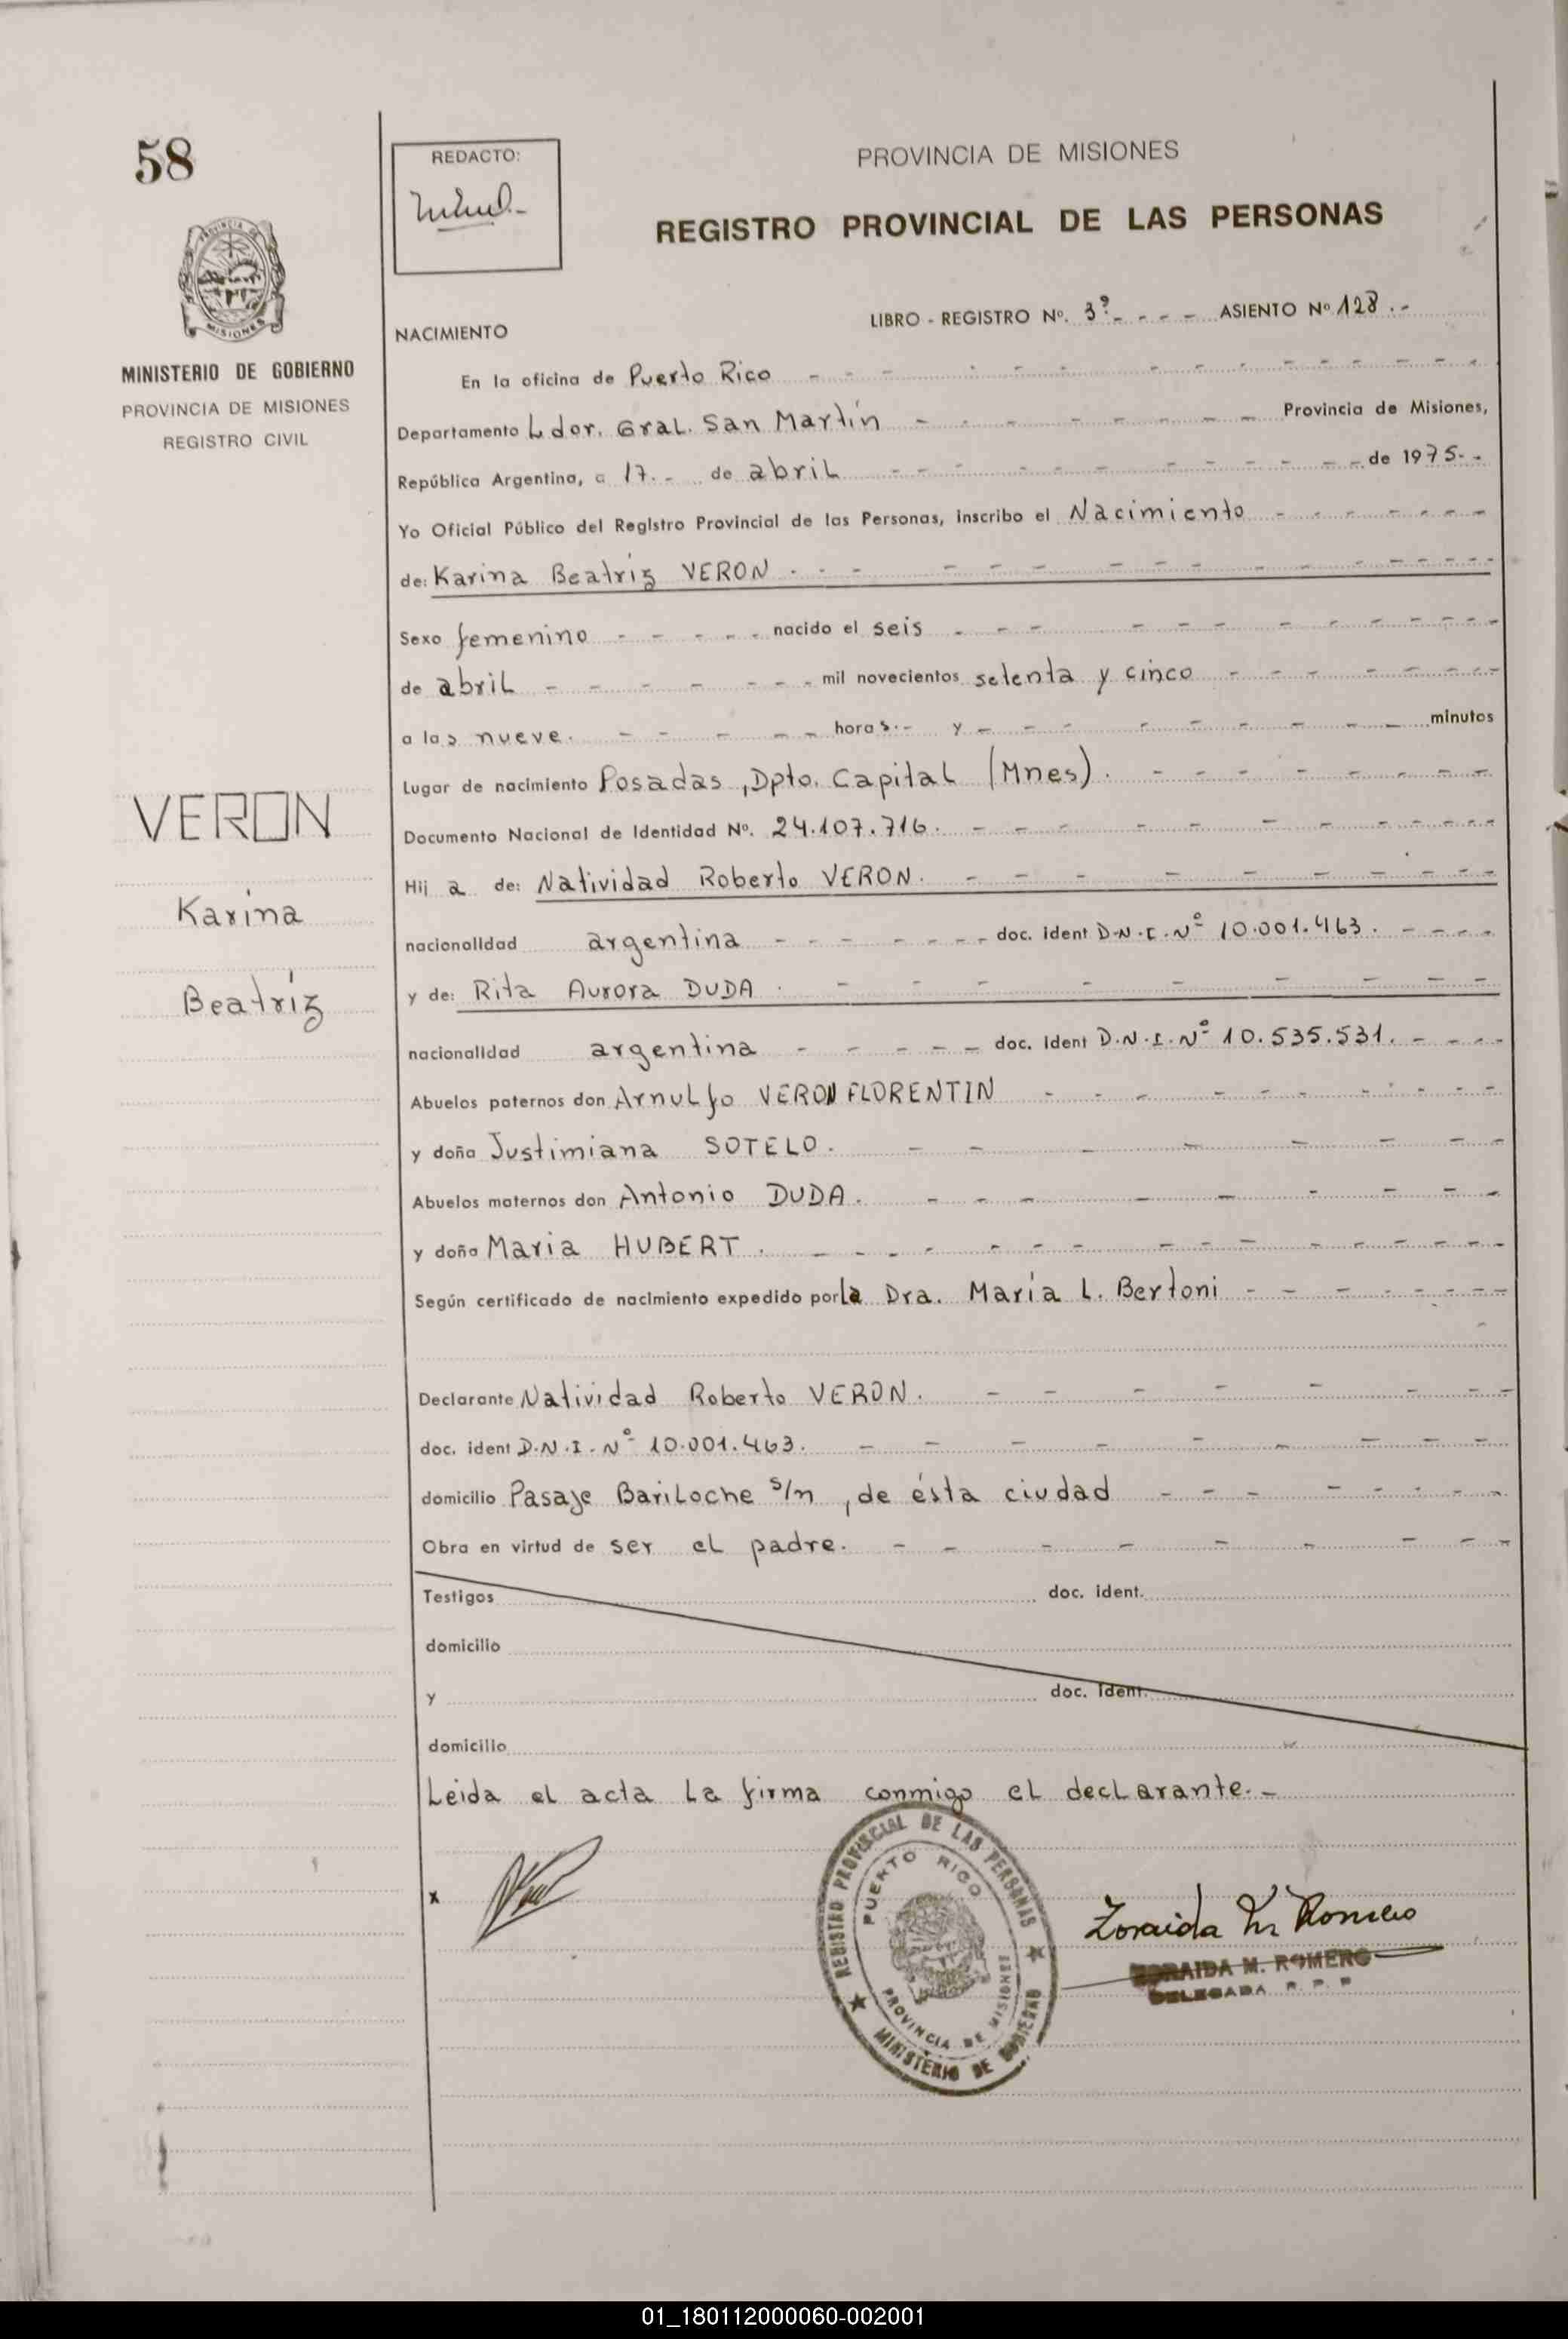 58
REDACTO:
PROVINCIA DE MISIONES
REGISTRO PROVINCIAL DE LAS PERSONAS
PROVINCIA DE
MISIONES
MINISTERIO DE GOBIERNO
PROVINCIA DE MISIONES
REGISTRO CIVIL
VERON
Karina
Beatriz
NACIMIENTO LIBRO - REGISTRO Nº. 3º.- - - - ASIENTO Nº 128.-
En la oficina de Puerto Rico
Departamento Ldor. Gral. San Martín Provincia de Misiones,
República Argentina, a 17.- de abril de 1975.-
Yo Oficial Público del Registro Provincial de las Personas, inscribo el Nacimiento
de: Karina Beatriz VERON.
Sexo femenino nacido el seis
de abril mil novecientos setenta y cinco
a las nueve. horas.- y - minutos
Lugar de nacimiento Posadas, Dpto. Capital (Mnes).
Documento Nacional de Identidad Nº. 24.107.716.
Hij a de: Natividad Roberto VERON.
nacionalidad argentina doc. ident D.N.I. Nº 10.001.463.
y de: Rita Aurora DUDA.
nacionalidad argentina doc. ident D.N.I. Nº 10.535.531.
Abuelos paternos don Arnulfo VERON FLORENTIN
y doña Justimiana SOTELO.
Abuelos maternos don Antonio DUDA.
y doña Maria HUBERT.
Según certificado de nacimiento expedido por la Dra. María L. Bertoni
Declarante Natividad Roberto VERON.
doc. ident D.N.I. Nº 10.001.463.
domicilio Pasaje Bariloche s/n, de ésta ciudad
Obra en virtud de ser el padre.
Testigos doc. ident.
domicilio
y doc. ident.
domicilio
Leida el acta la firma conmigo el declarante.-
x
REGISTRO PROVINCIAL DE LAS PERSONAS
PUERTO RICO
PROVINCIA DE MISIONES
MINISTERIO DE GOBIERNO
Zoraida M Romero
ZORAIDA M. ROMERO
DELEGADA R. P. P
01_180112000060-002001